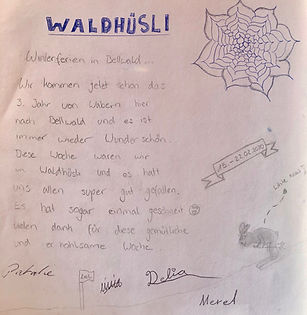 WALDHÜSLI
Winterferien in Bellwald...
Wir kommen jetzt schon das
3. Jahr von Wabern hier
nach Bellwald und es ist
immer wieder Wunderschön.
Diese Woche waren wir
im Waldhüsli und es hatt
uns allen super gut gefallen.
Es hat sogar einmal geschneit
vielen dank für diese gemütliche
und erhohlsame Woche
15. - 22.02.2020
Delia
Merel